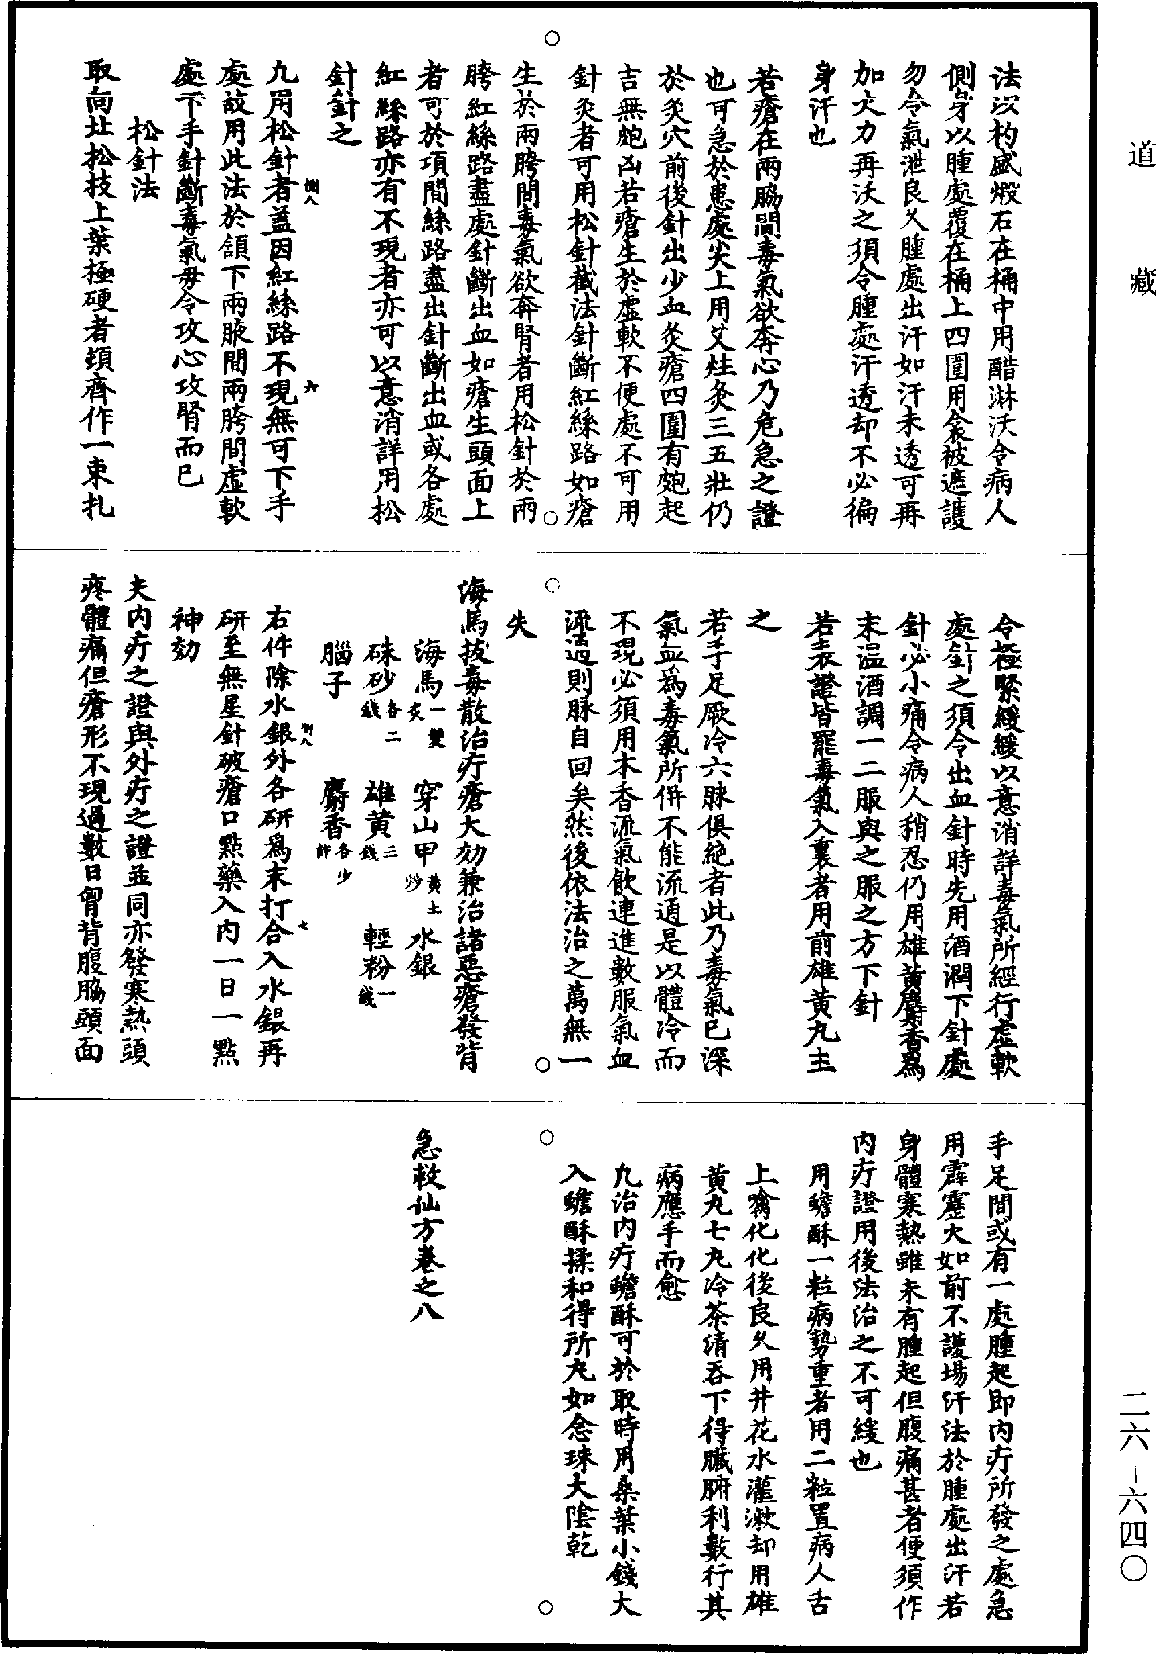 道藏
法以杓盛煅石在桶中用醋淋沃令病人
側身以腫處覆在桶上四圍用衾被遮護
勿令氣泄良久腫處出汗如汗未透可再
加火力再沃之須令腫處汗透却不必徧
身汗也
若瘡在兩脇間毒氣欲奔心乃危急之證
也可急於患處尖上用艾炷灸三五壯仍
於灸穴前後針出少血灸瘡四圍有皰起
吉無皰凶若瘡生於虛軟不便處不可用
針灸者可用松針截法針斷紅絲路如瘡
生於兩胯間毒氣欲奔腎者用松針於兩
胯紅絲路盡處針斷出血如瘡生頭面上
者可於項間絲路盡出針斷出血或各處
紅絲路亦有不現者亦可以意消詳用松
針針之
凢用松針者蓋因紅絲路不現無可下手
處故用此法於頷下兩腋間兩胯間虛軟
處下手針斷毒氣毋令攻心攻腎而已
松針法
取向北松枝上葉極硬者頓齊作一束扎
令極緊緩緩以意消詳毒氣所經行虛軟
處針之須令出血針時先用酒潤下針處
針必小痛令病人稍忍仍用雄黄麝香爲
末温酒調一二服與之服之方下針
若表證皆罷毒氣入裏者用前雄黄丸主
之
若手足厥冷六脉俱絶者此乃毒氣已深
氣血爲毒氣所併不能流通是以體冷而
不現必須用木香流氣飲連進數服氣血
流通則脉自回矣然後依法治之萬無一
失
海馬拔毒散治疔瘡大効兼治諸惡瘡發背
海馬一雙炙 穿山甲黄土炒 水銀
硃砂各二錢 雄黄三錢 輕粉一錢
腦子 麝香各少許
右件除水銀外各研爲末打合入水銀再
研至無星針破瘡口點藥入内一日一點
神効
夫内疔之證與外疔之證並同亦發寒熱頭
疼體痛但瘡形不現過數日胷背腹脇頭面
手足間或有一處腫起即内疔所發之處急
用霹靂火如前不護場汗法於腫處出汗若
身體寒熱雖未有腫起但腹痛甚者便須作
内疔證用後法治之不可緩也
用蟾酥一粒病勢重者用二粒置病人舌
上噙化化後良久用井花水灌漱却用雄
黄丸七丸冷茶清吞下得臟腑利數行其
病應手而愈
凢治内疔蟾酥可於取時用桑葉小錢大
入蟾酥揉和得所丸如念珠大陰乾
急救仙方卷之八
二六-六四〇